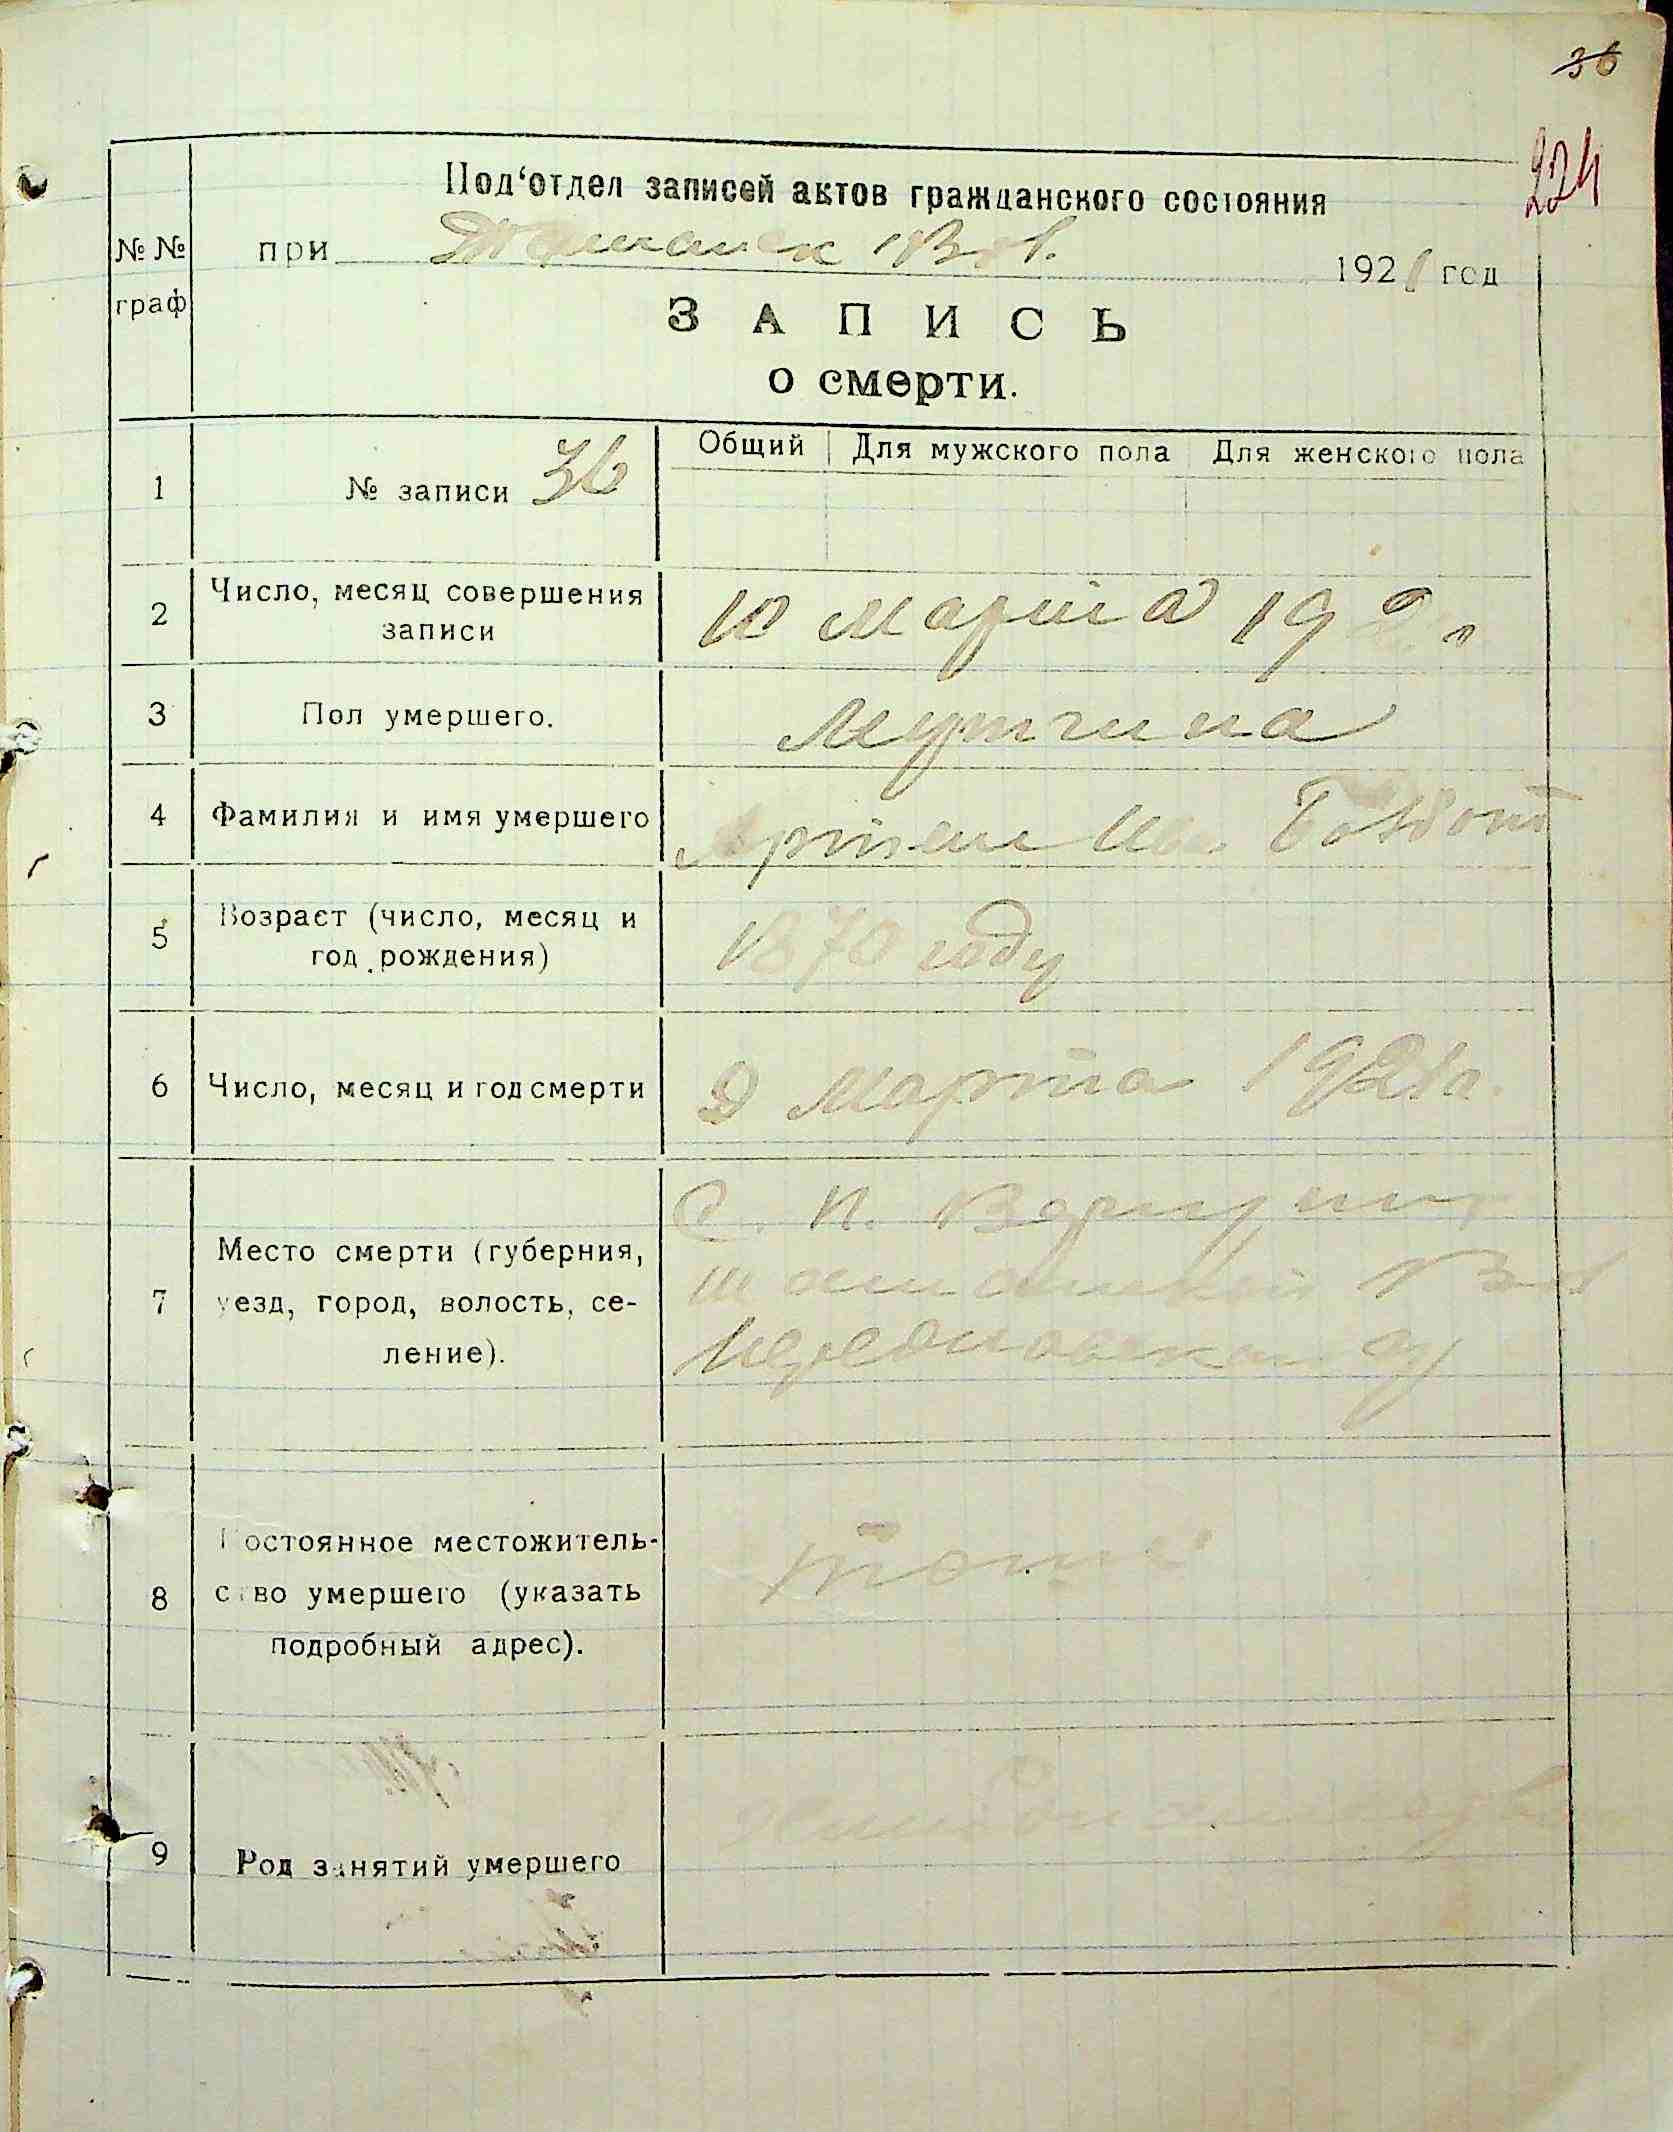 36
224
Под‘отдел записей актов гражданского состояния
№ №
граф
при Вол. 1921 год
ЗАПИСЬ
о смерти.
1 № записи 36 Общий Для мужского пола Для женского пола
2 Число, месяц совершения
записи
10 Марта 192
3 Пол умершего. Мущина
4 Фамилия и имя умершего Артем Ив.
5 Возраст (число, месяц и
год рождения)
1870 году
6 Число, месяц и год смерти 9 Марта 1921 г.
7 Место смерти (губерния,
уезд, город, волость, се-
ление).
С. П.
Вол
у
8 Постоянное местожитель-
ство умершего (указать
подробный адрес).
тоже
9 Род занятий умершего